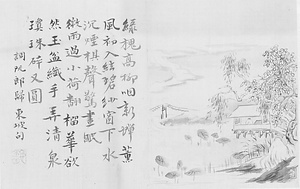 綠槐高柳咽新蟬薰
風初入絃碧紗窗下水
沉煙棋聲驚晝眠
微雨過小荷翻榴華欲
然玉盆纖手弄清泉
瓊珠碎又圓
調阮郎歸 東坡句